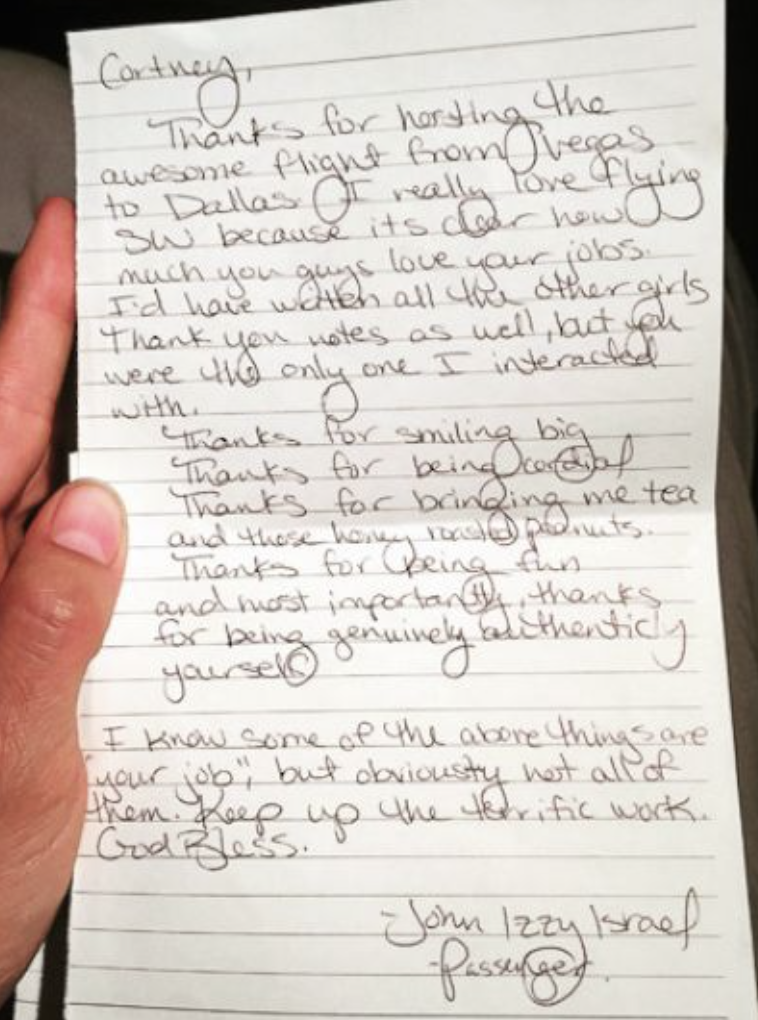 Cortney,
Thanks for hosting the
awesome flight from Vegas
to Dallas. I really love flying
SW because its clear how
much you guys love your jobs.
I'd have written all the other girls
thank you notes as well, but you
were the only one I interacted
with.
Thanks for smiling big
Thanks for being cordial
Thanks for bringing me tea
and those honey roasted peanuts.
Thanks for being fun
and most importantly, thanks
for being genuinely authenticly
yourself
I know some of the above things are
"your job", but obviously not all of
them. Keep up the terrific work.
God Bless.
-John Izzy Israel
-Passenger.